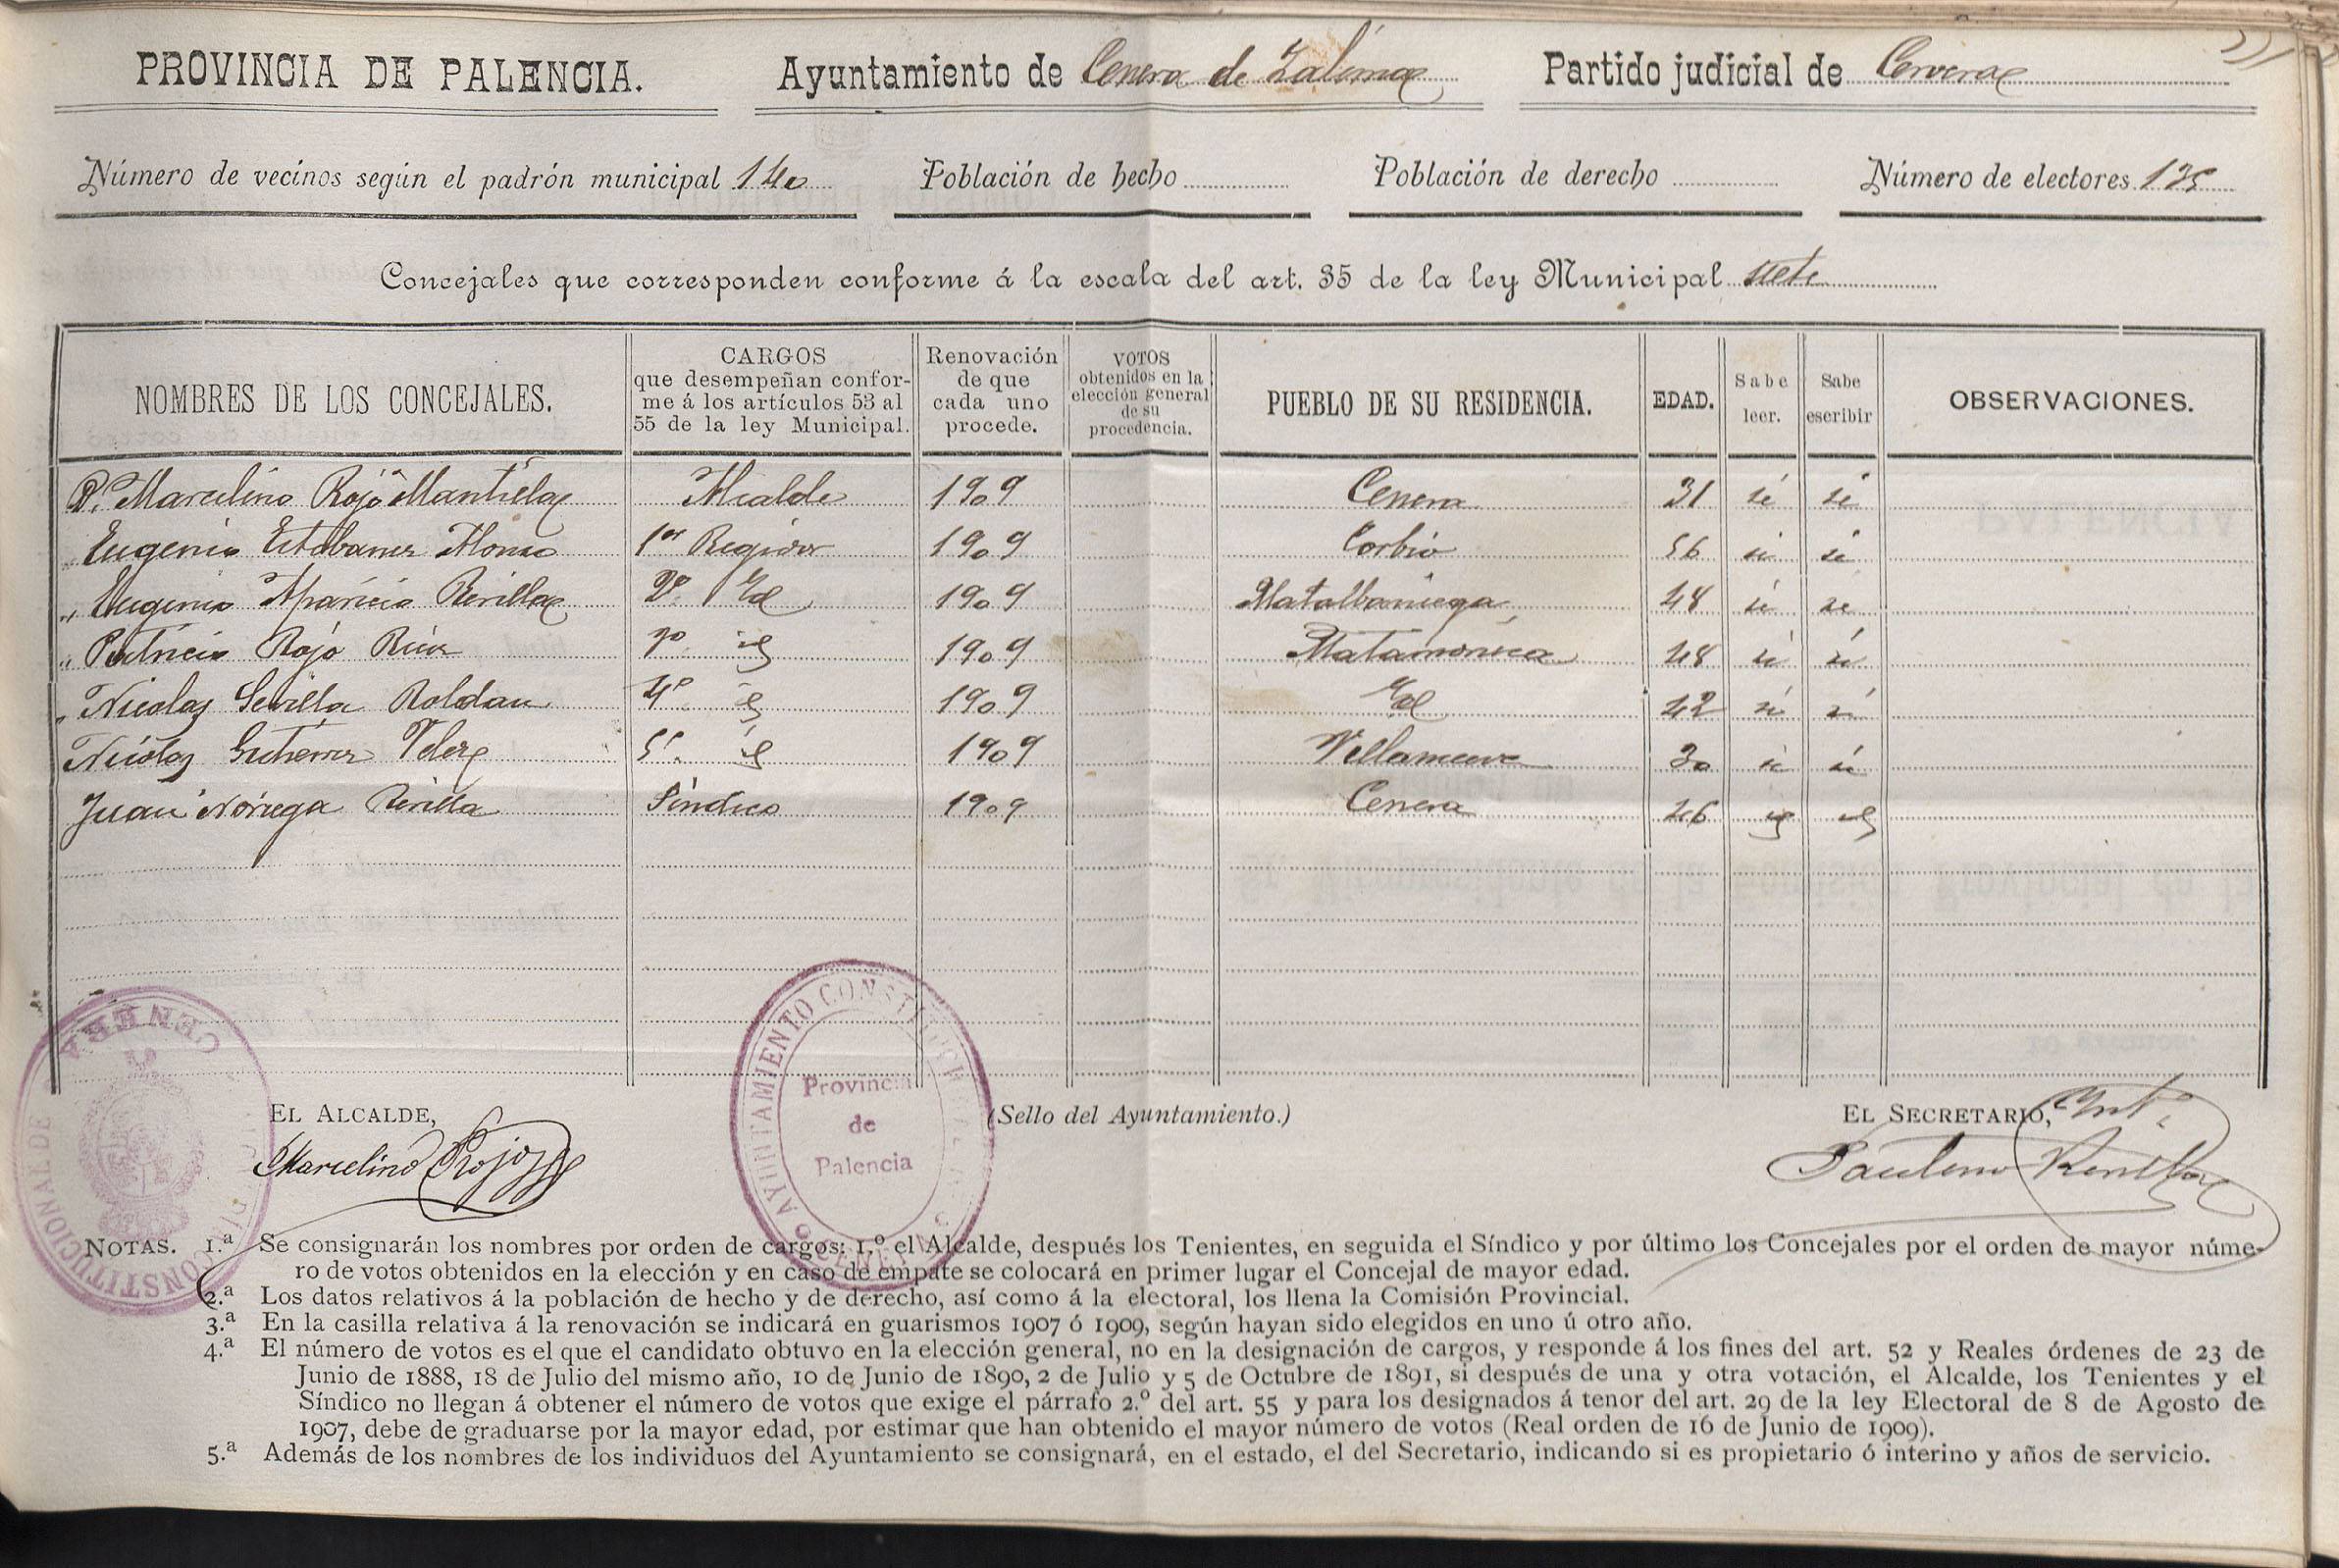 PROVINCIA DE PALENCIA. Ayuntamiento de Cenera de Zalima Partido judicial de Cervera
Número de vecinos según el padrón municipal 140 Población de hecho Población de derecho Número de electores 135
Concejales que corresponden conforme á la escala del art. 35 de la ley Municipal siete
NOMBRES DE LOS CONCEJALES. CARGOS que desempeñan conforme á los artículos 53 al 55 de la ley Municipal. Renovación de que cada uno procede. VOTOS obtenidos en la elección general de su procedencia. PUEBLO DE SU RESIDENCIA. EDAD. Sabe leer. Sabe escribir OBSERVACIONES.
D. Marcelino Rojo Mantilla Alcalde 1909 Cenera 31 si si
" Eugenio Estebanez Alonso 1er Regidor 1909 Corbio 56 si si
" Eugenio Aparicio Revilla 2º Id 1909 Matalbaniega 48 si si
" Patricio Rojo Ruiz 3º id 1909 Matamorisca 48 si si
" Nicolas Sevilla Roldan 4º id 1909 Id 42 si si
Nicolas Gutierrez Velez 5º id 1909 Villanueva 30 si si
Juan Noriega Revilla Sindico 1909 Cenera 46 id id
AYUNTAMIENTO CONSTITUCIONAL DE CENERA
Provincia
de
Palencia
CONSTITUCIONAL DE CENERA
EL ALCALDE, (Sello del Ayuntamiento.) EL SECRETARIO, Int.
Marcelino Rojo Paulino Revilla
NOTAS. 1.ª Se consignarán los nombres por orden de cargos: 1.º el Alcalde, después los Tenientes, en seguida el Síndico y por último los Concejales por el orden de mayor núme-
ro de votos obtenidos en la elección y en caso de empate se colocará en primer lugar el Concejal de mayor edad.
2.ª Los datos relativos á la población de hecho y de derecho, así como á la electoral, los llena la Comisión Provincial.
3.ª En la casilla relativa á la renovación se indicará en guarismos 1907 ó 1909, según hayan sido elegidos en uno ú otro año.
4.ª El número de votos es el que el candidato obtuvo en la elección general, no en la designación de cargos, y responde á los fines del art. 52 y Reales órdenes de 23 de
Junio de 1888, 18 de Julio del mismo año, 10 de Junio de 1890, 2 de Julio y 5 de Octubre de 1891, si después de una y otra votación, el Alcalde, los Tenientes y el
Síndico no llegan á obtener el número de votos que exige el párrafo 2.º del art. 55 y para los designados á tenor del art. 29 de la ley Electoral de 8 de Agosto de
1907, debe de graduarse por la mayor edad, por estimar que han obtenido el mayor número de votos (Real orden de 16 de Junio de 1909).
5.ª Además de los nombres de los individuos del Ayuntamiento se consignará, en el estado, el del Secretario, indicando si es propietario ó interino y años de servicio.